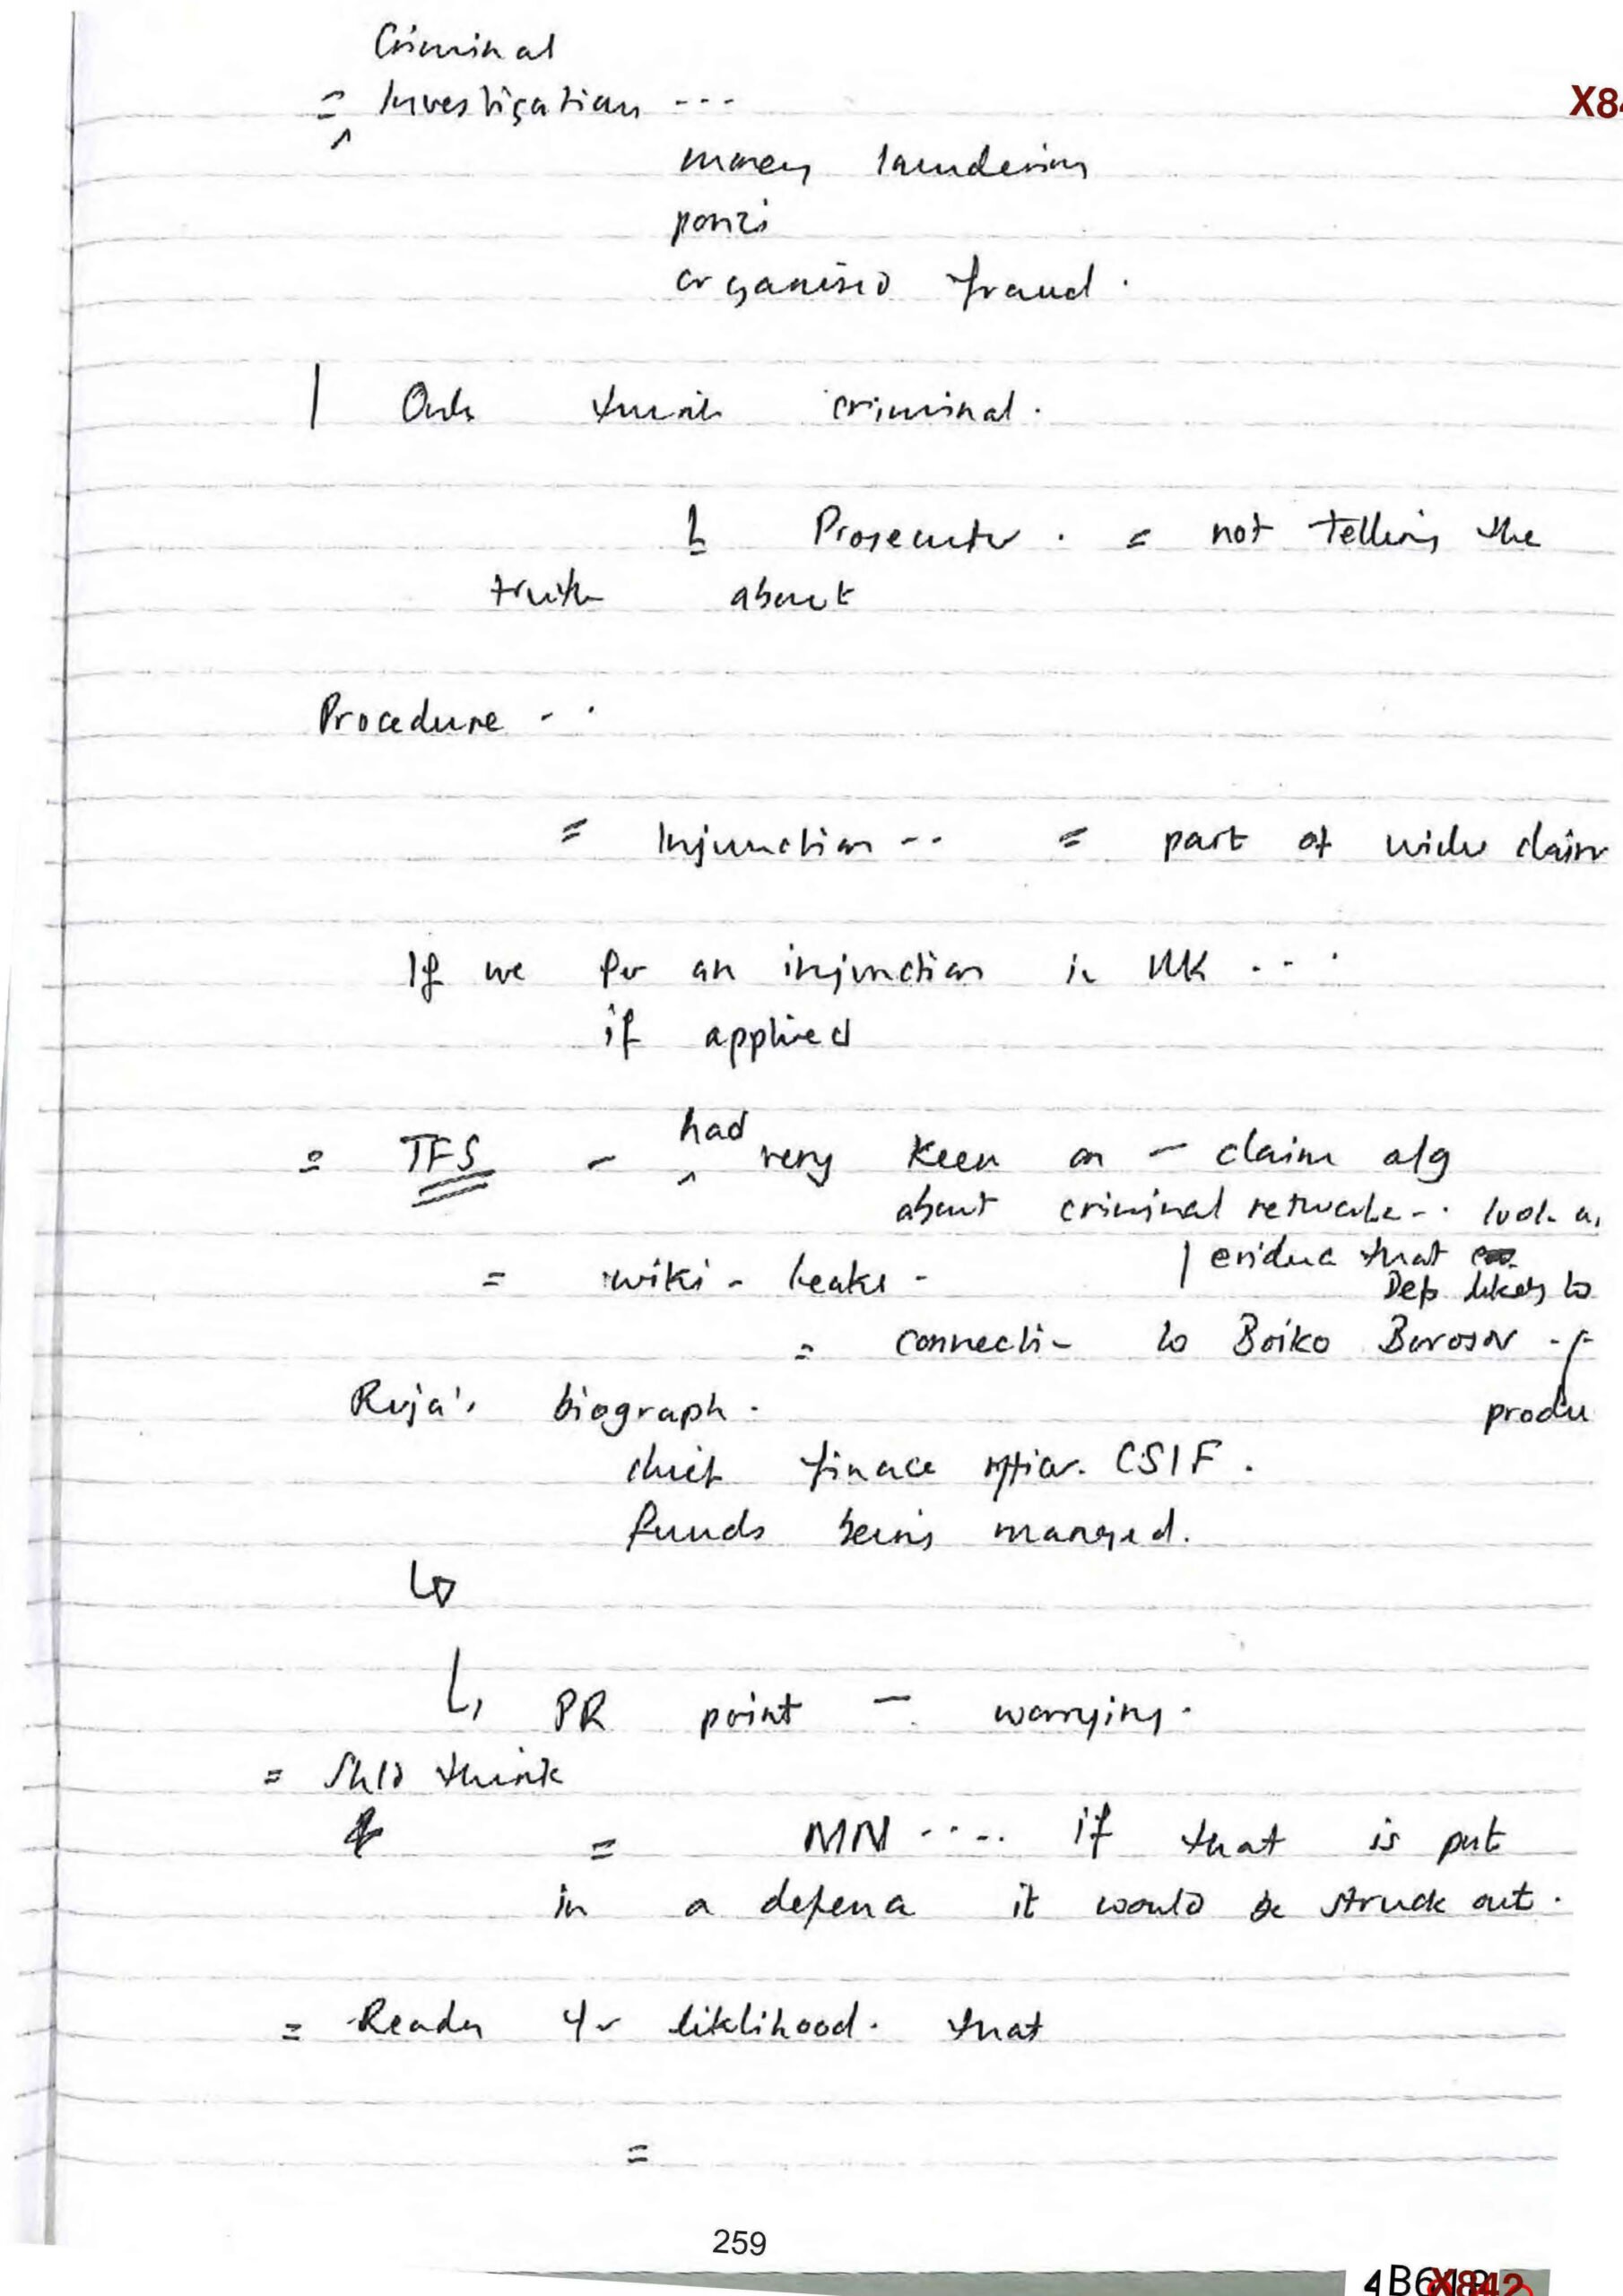 Criminal
= Investigation ---
X8
money laundering
ponzi
organised fraud.
| Only think criminal.
Prosecutor . = not telling the
truth about
Procedure - .
= Injunction -- = part of wider claim
If we for an injunction in UK ...
if applied
= TFS - had very keen on - claim alg
about criminal network - . look a
= wiki - leaks - | evidence that
Defs likely to
= connecti- to Boiko Borosov -
Ruja's biograph. produ
chief finace officer. CSIF.
funds being managed.
↳
↳ PR point - worrying.
= Shld think
= MN .... if that is put
in a defence it would be struck out.
= Reader liklihood. that
=
259